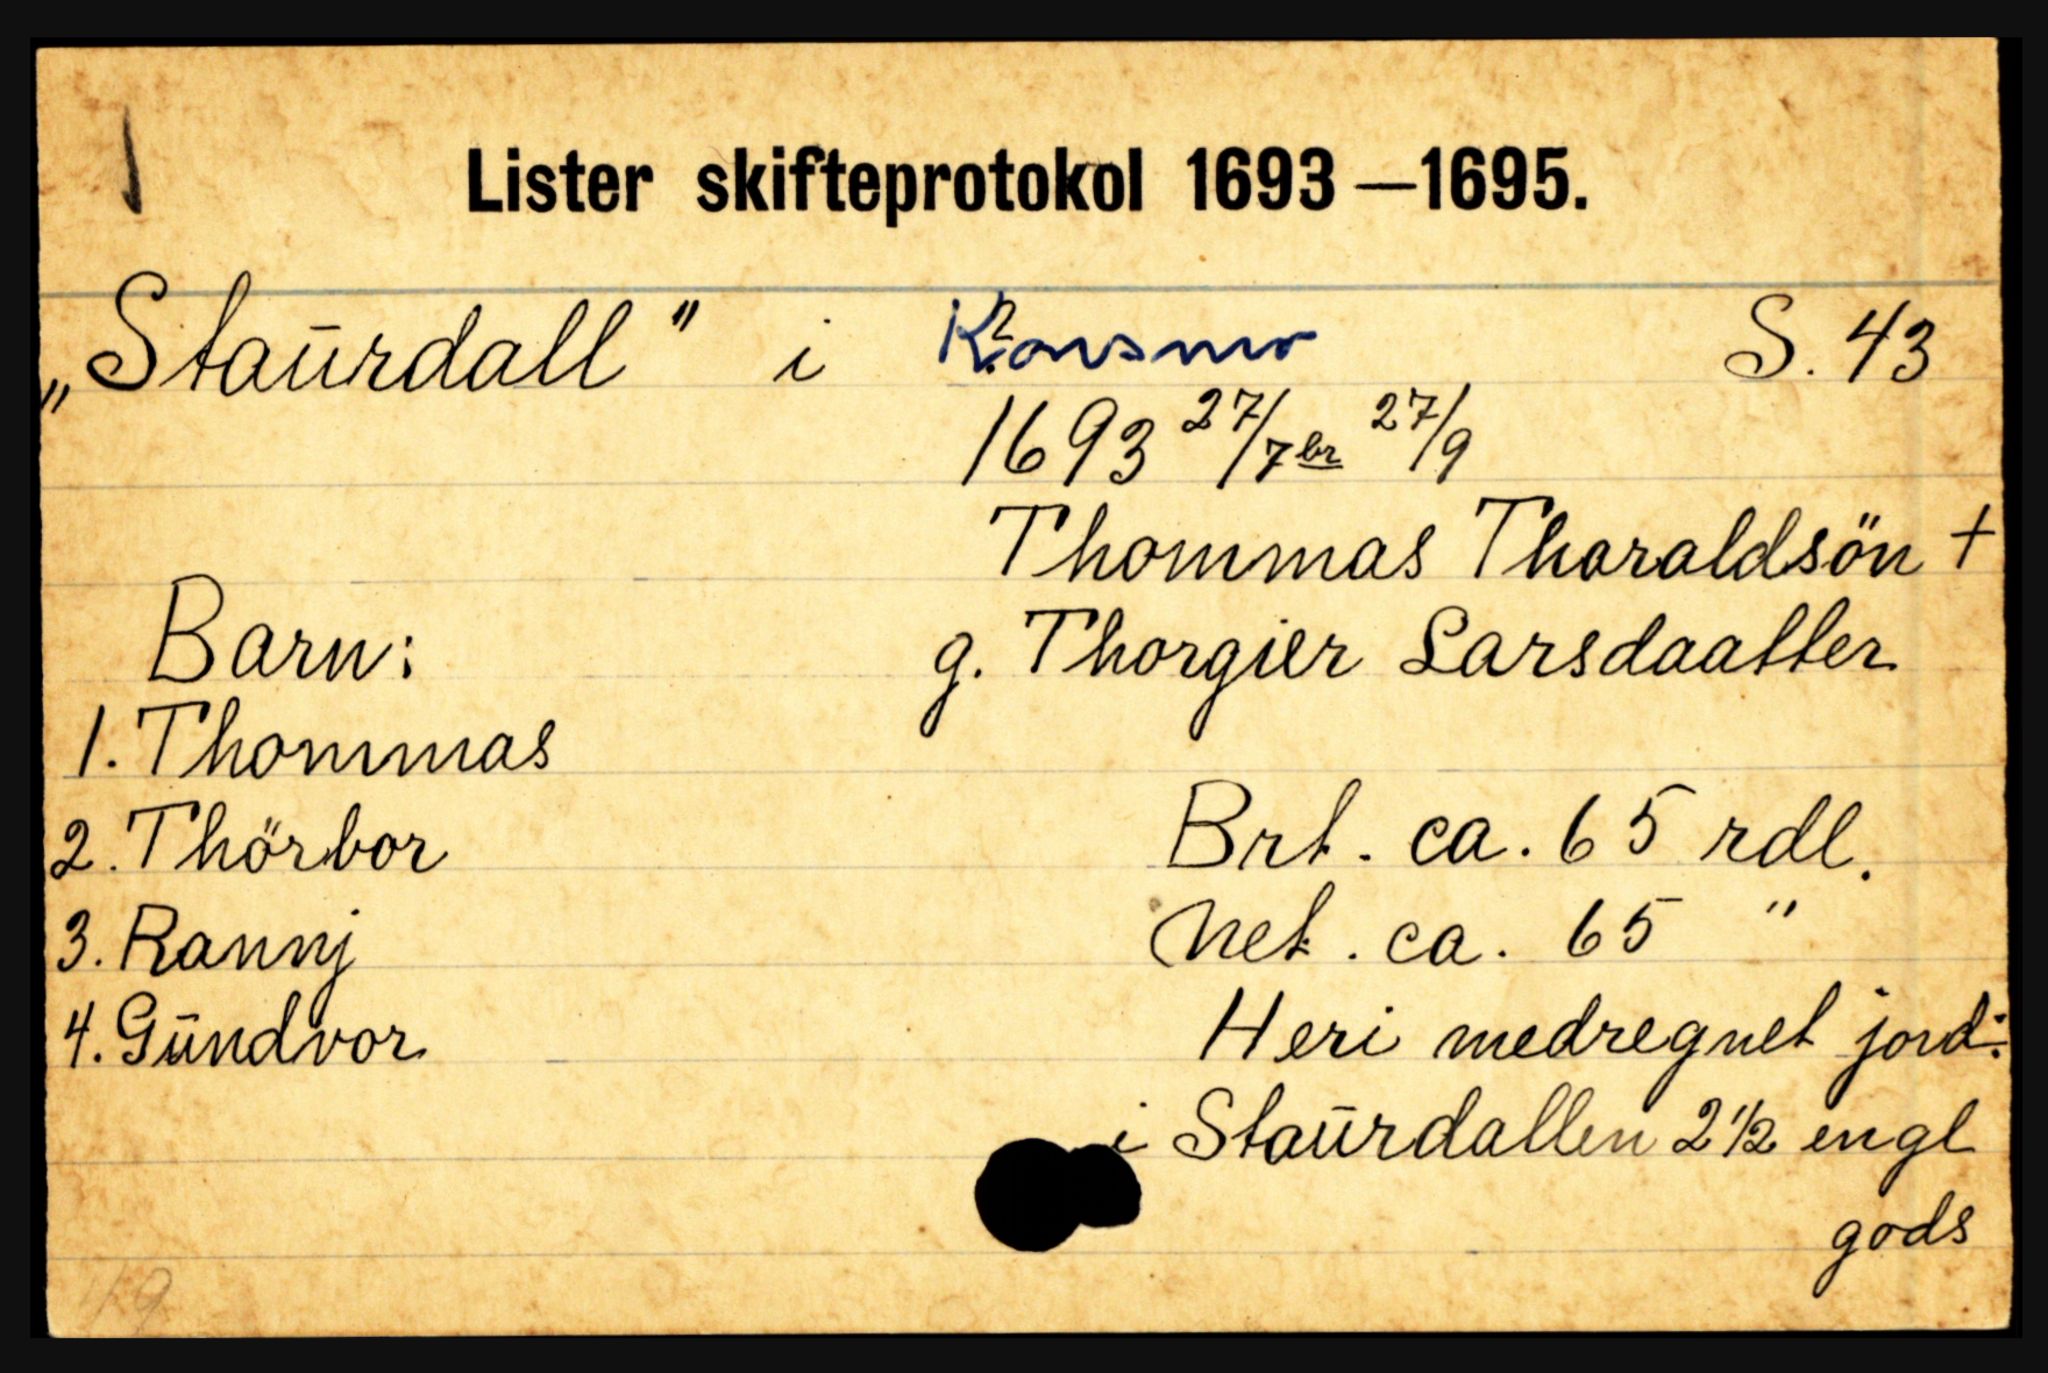 Lister skifteprotokol 1693—1695.
„Staŭrdall" i ? Konsmo S. 43
1693 27/7br 27/9
Thommas Tharaldsön +
Barn: g. Thorgier Larsdaatter
1. Thommas
2. Thörbor Brt. ca. 65 rdl.
3. Rannj Net. ca. 65 "
4. Gŭndvor Heri medregnet jord:
i Staŭrdallen 2 1/2 engl
gods
49